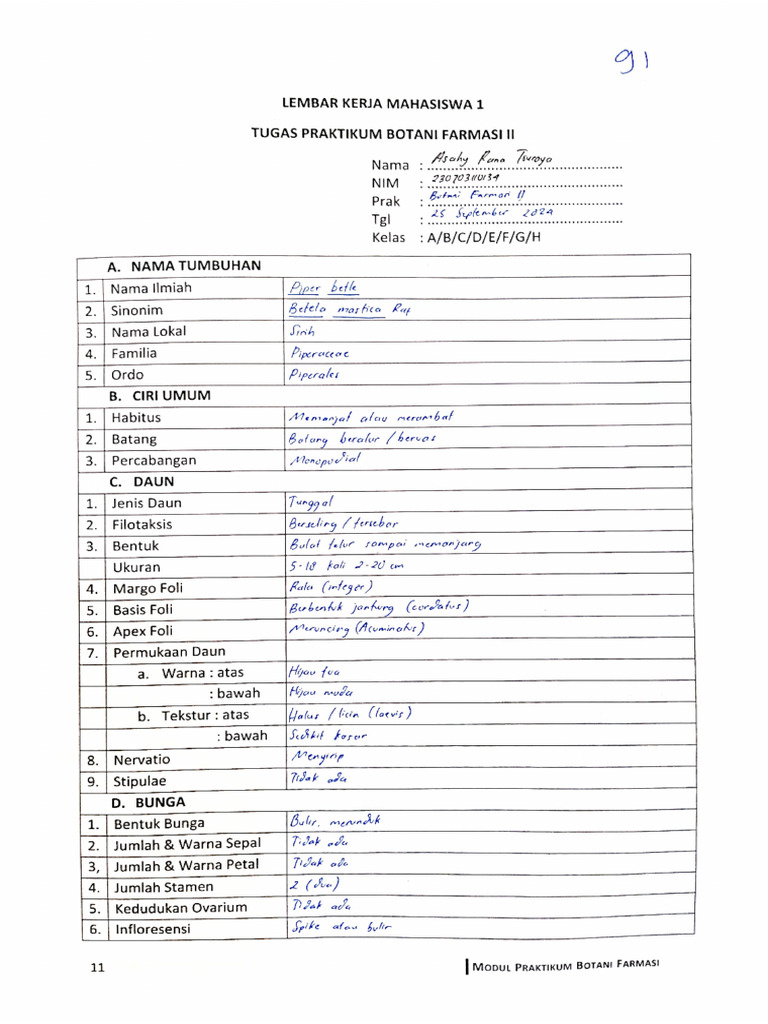 91
LEMBAR KERJA MAHASISWA 1
TUGAS PRAKTIKUM BOTANI FARMASI II
Nama : Asahy Rana Tsuraya
NIM : 230703110134
Prak : Botani Farmasi II
Tgl : 25 September 2024
Kelas : A/B/C/D/E/F/G/H
A. NAMA TUMBUHAN
1. Nama Ilmiah Piper betle
2. Sinonim Betela mastica Raf
3. Nama Lokal Sirih
4. Familia Piperaceae
5. Ordo Piperales
B. CIRI UMUM
1. Habitus Memanjat atau merambat
2. Batang Batang beralur / beruas
3. Percabangan Monopodial
C. DAUN
1. Jenis Daun Tunggal
2. Filotaksis Berseling / tersebar
3. Bentuk Bulat telur sampai memanjang
Ukuran 5-18 kali 2-20 cm
4. Margo Foli Rata (integer)
5. Basis Foli Berbentuk jantung (cordatus)
6. Apex Foli Meruncing (Acuminatus)
7. Permukaan Daun
a. Warna : atas Hijau tua
: bawah Hijau muda
b. Tekstur : atas Halus / licin (laevis)
: bawah Sedikit kasar
8. Nervatio Menyirip
9. Stipulae Tidak ada
D. BUNGA
1. Bentuk Bunga Bulir, merunduk
2. Jumlah & Warna Sepal Tidak ada
3, Jumlah & Warna Petal Tidak ada
4. Jumlah Stamen 2 (dua)
5. Kedudukan Ovarium Tidak ada
6. Infloresensi Spike atau bulir
11 MODUL PRAKTIKUM BOTANI FARMASI